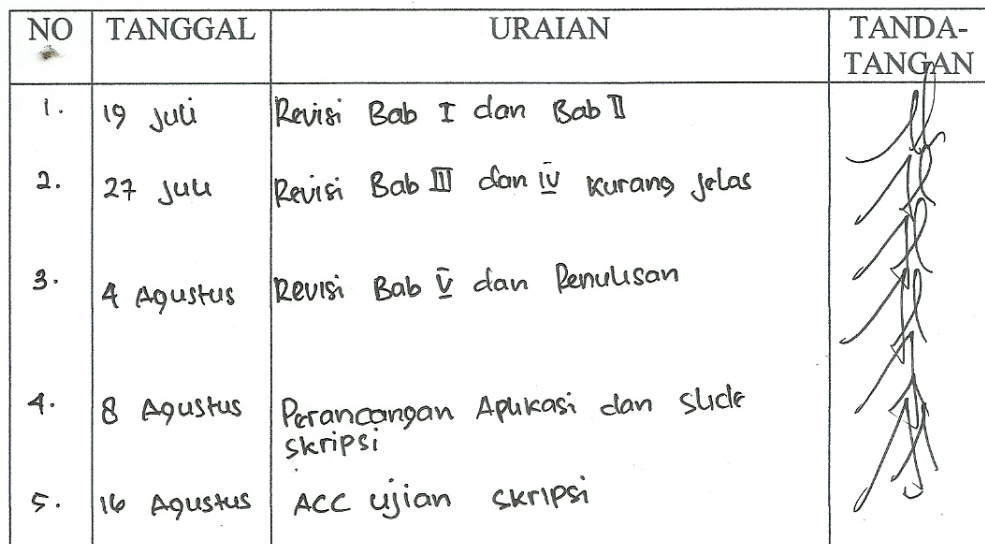 NO TANGGAL URAIAN TANDA-
TANGAN
1. 19 Juli Revisi Bab I dan Bab II
2. 27 Juli Revisi Bab III dan IV Kurang jelas
3. 4 Agustus Revisi Bab V dan Penulisan
4. 8 Agustus Perancangan Aplikasi dan Slide
Skripsi
5. 16 Agustus ACC Ujian Skripsi